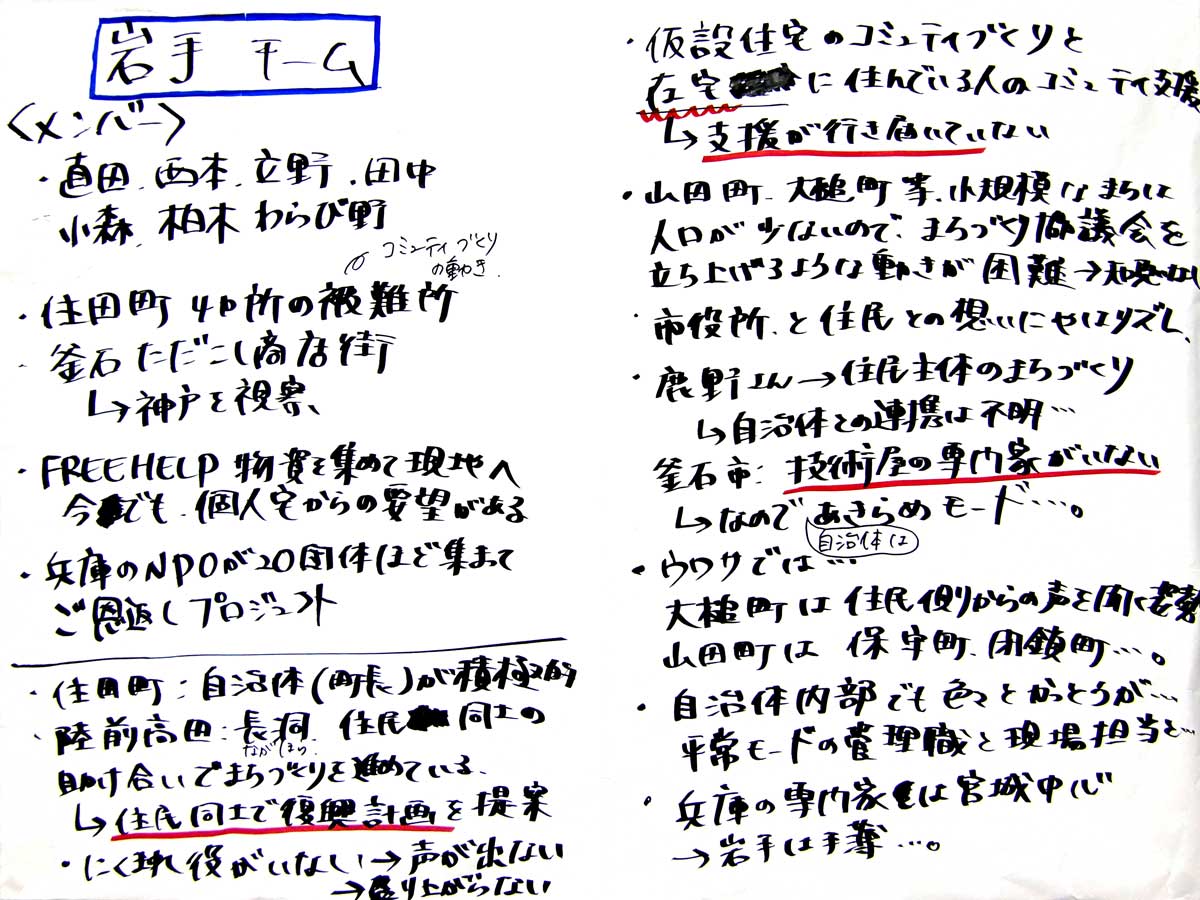 岩手 チーム
〈メンバー〉
・直田、西本、立野、田中
小森、柏木 わらび野
コミュティづくり
の動き、
・住田町 4ヶ所の被難所
・釜石 ただこし商店街
↳神戸を視察、
・FREE HELP 物資を集めて現地へ
今でも、個人宅からの要望がある
・兵庫のNPOが20団体ほど集まって
ご恩返しプロジェクト
・住田町：自治体(町長)が積極的
、陸前高田：長洞、住民 同士の
ながほら
助け合いでまちづくりを進めている、
↳住民同士で復興計画を提案
・にくまれ役がいない→声が出ない
→盛り上がらない
・仮設住宅のコミュティづくりと
在宅 に住んでいる人のコミュティ支援
↳支援が行き届いていない
・山田町、大槌町等、小規模なまちは
人口が少ないので、まちづくり協議会を
立ち上げるような動きが困難→
・市役所、と住民との想いにやはりズレ、
・鹿野さん→住民主体のまちづくり
↳自治体との連携は不明…
釜石市：技術屋の専門家がいない
↳なので あきらめモード…。
自治体は
・ウワサでは…
大槌町は住民側からの声を聞く姿勢
山田町は 保守町、閉鎖町…。
・自治体内部でも色々とかっとうが…
平常モードの管理職と現場担当と…
・兵庫の専門家は宮城中心
→岩手は手薄…。